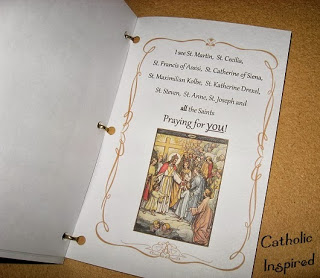 I see St. Martin, St. Cecilia,
St. Francis of Assisi, St. Catherine of Siena,
St. Maximilian Kolbe, St. Katherine Drexel,
St. Steven, St. Anne, St. Joseph and
all the Saints
Praying for you!
Catholic
Inspired